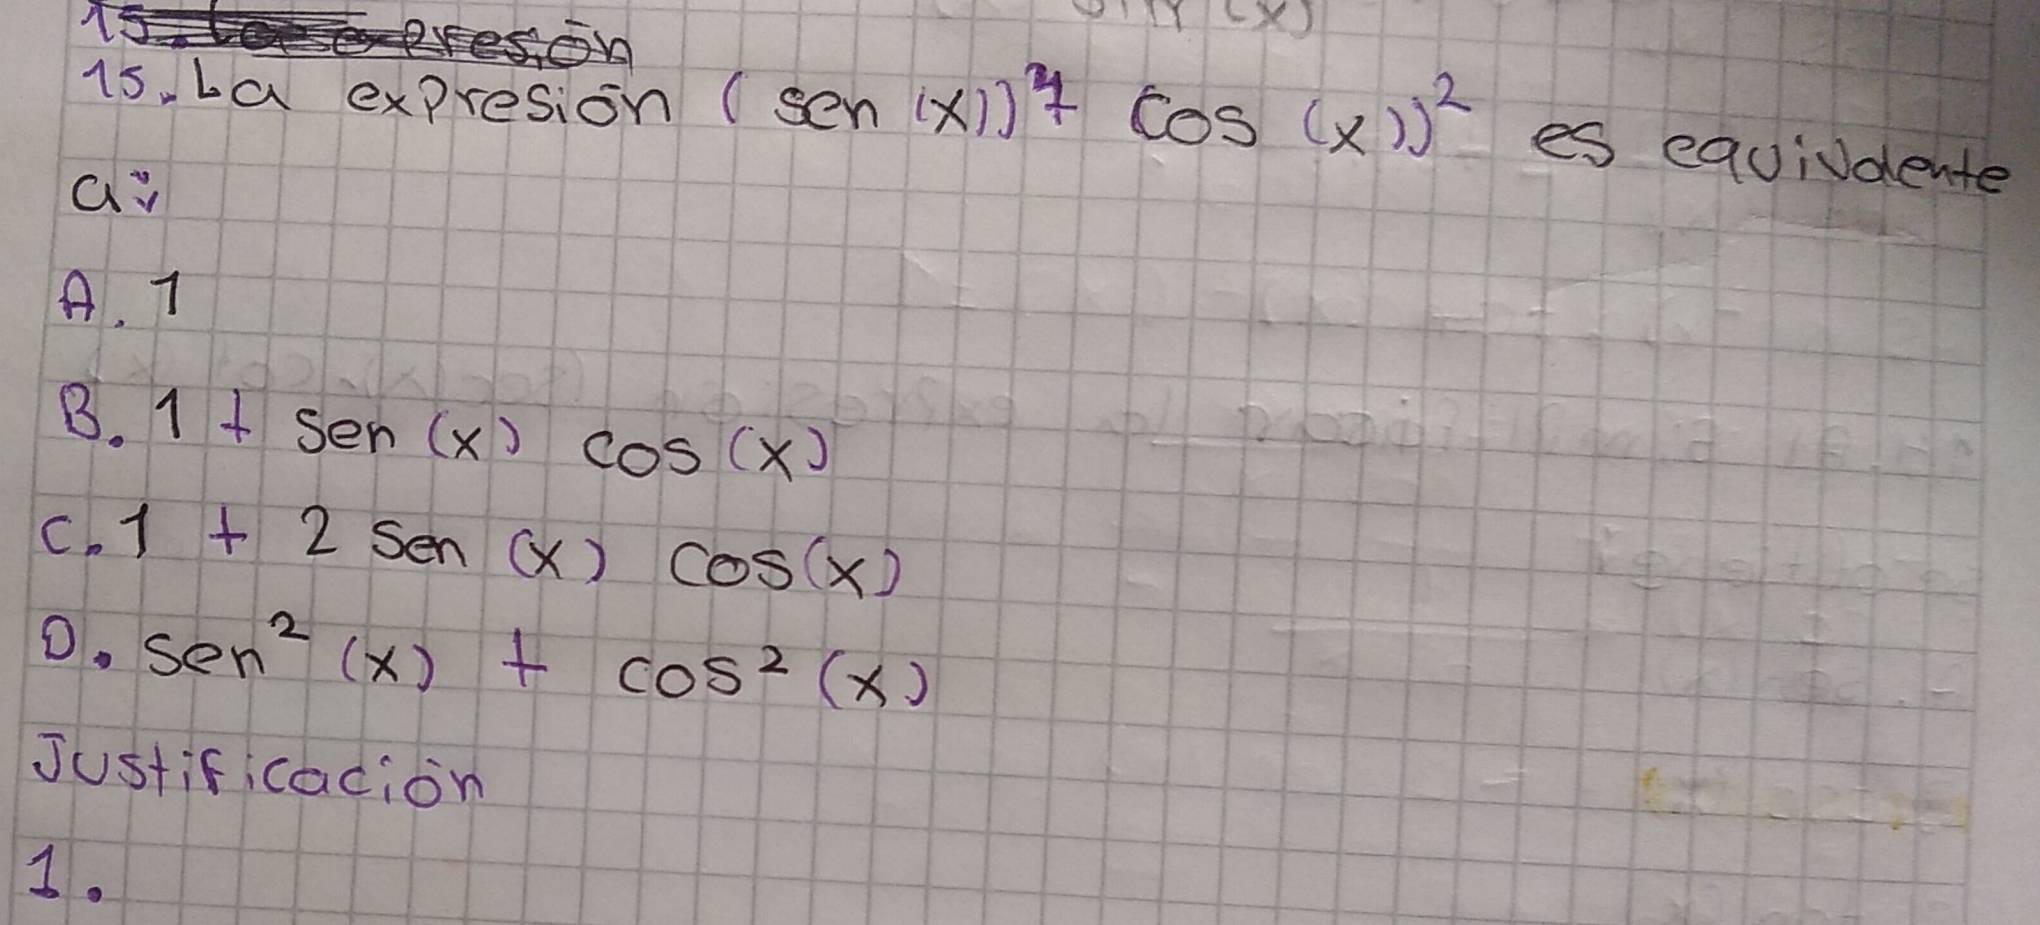 15. La expresión (sen (x)) + cos (x))² es equivalente
a:
A. 1
B. 1 + sen (x) cos (x)
C. 1 + 2 sen (x) cos(x)
D. sen² (x) + cos² (x)
Justificación
1.